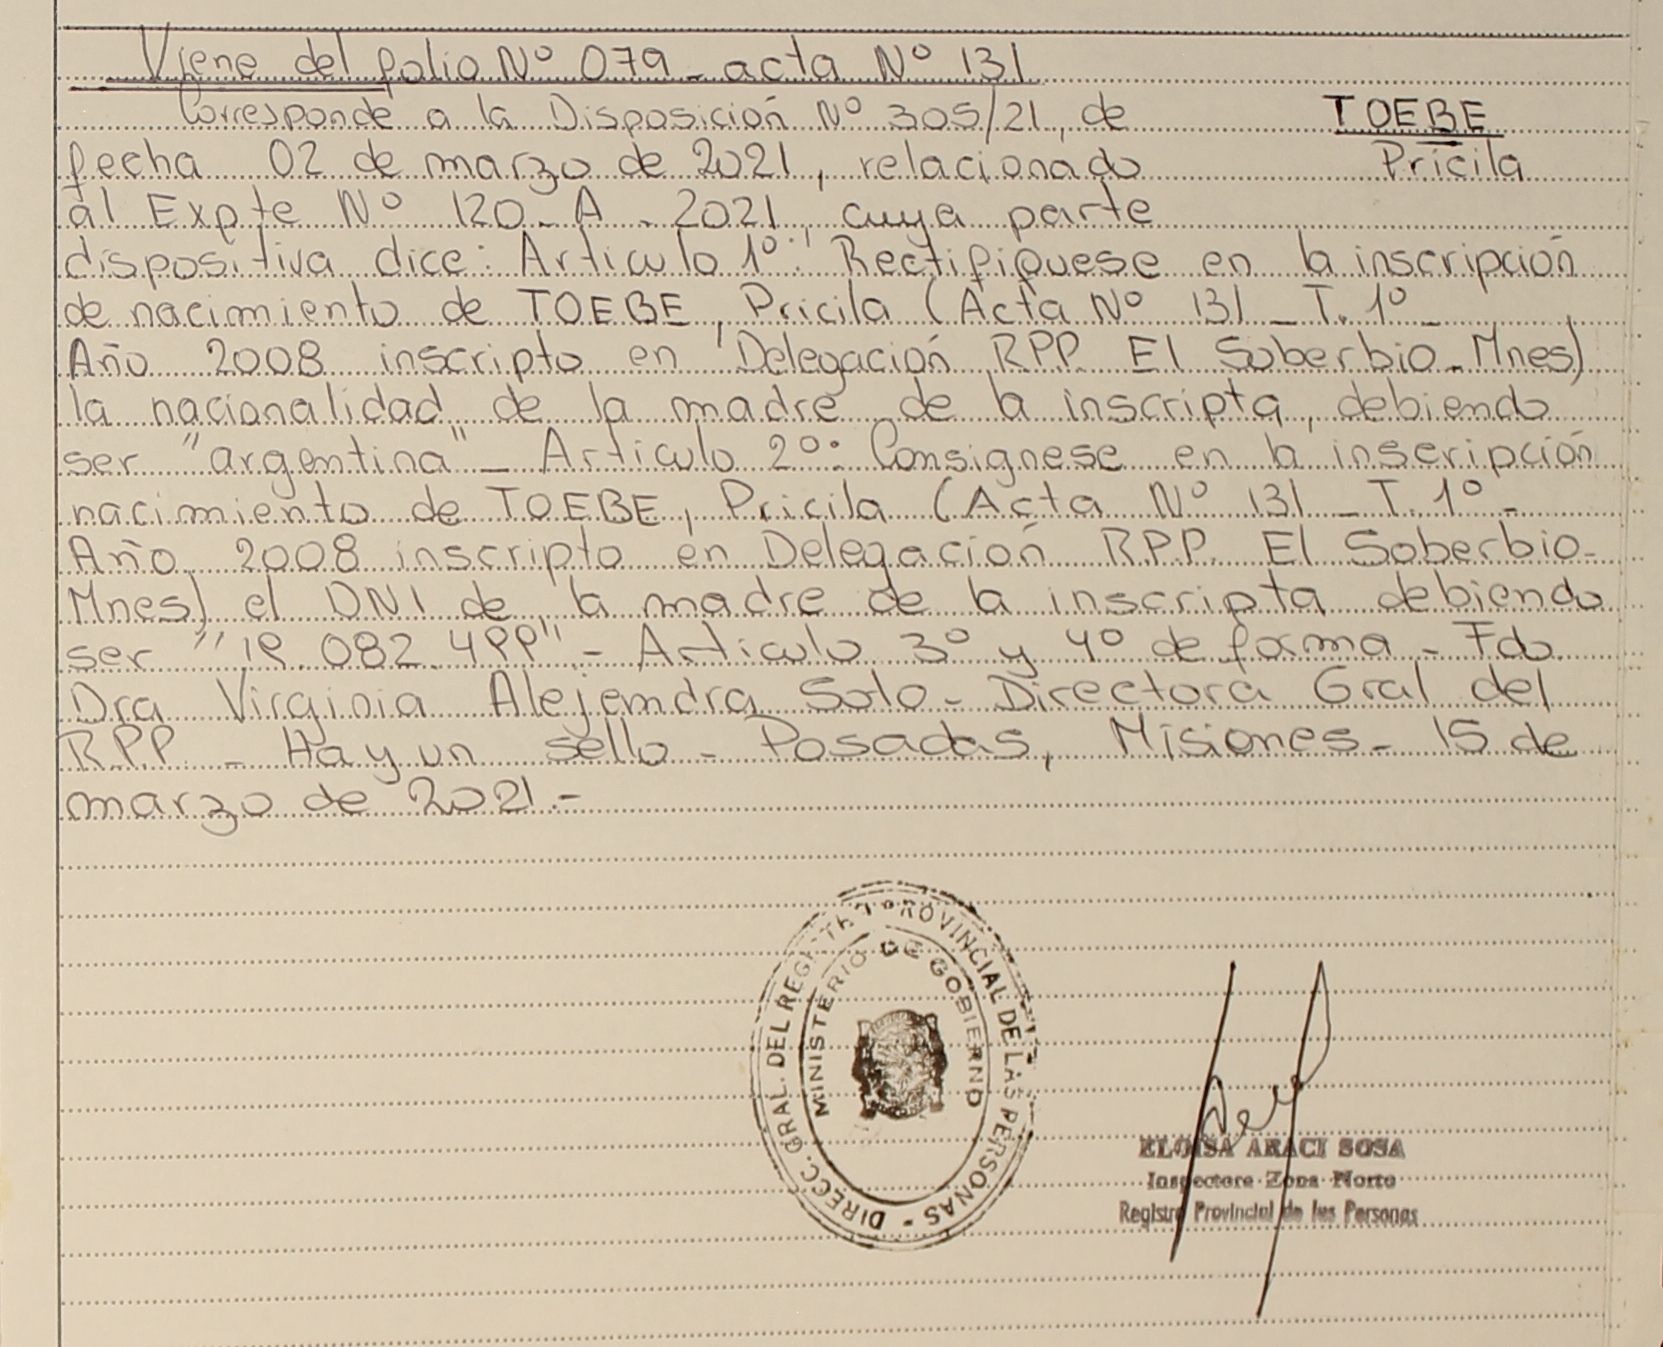 Viene del folio Nº 079 - acta Nº 131
Corresponde a la Disposición Nº 305/21, de
TOEBE
fecha 02 de marzo de 2021, relacionado
Pricila
al Expte Nº 120-A-2021, cuya parte
dispositiva dice: Articulo 1º: Rectifiquese en la inscripción
de nacimiento de TOEBE, Pricila (Acta Nº 131 - T. 1º -
Año 2008 inscripto en Delegación RPP. El Soberbio - Mnes)
la nacionalidad de la madre de la inscripta, debiendo
ser "argentina" - Articulo 2º: Consignese en la inscripción
nacimiento de TOEBE, Pricila (Acta Nº 131 - T. 1º -
Año 2008 inscripto en Delegación R.P.P. El Soberbio -
Mnes) el DNI de la madre de la inscripta debiendo
ser - Articulo 3º y 4º de forma - Fdo
Dra Virginia Alejandra Soto - Directora Gral del
R.P.P. - Hay un sello - Posadas, Misiones - 15 de
marzo de 2021.-
DIRECC. GRAL. DEL REGISTRO PROVINCIAL DE LAS PERSONAS -
MINISTERIO DE GOBIERNO
ELOISA ARACI SOSA
Inspectora Zona Norte
Registro Provincial de las Personas